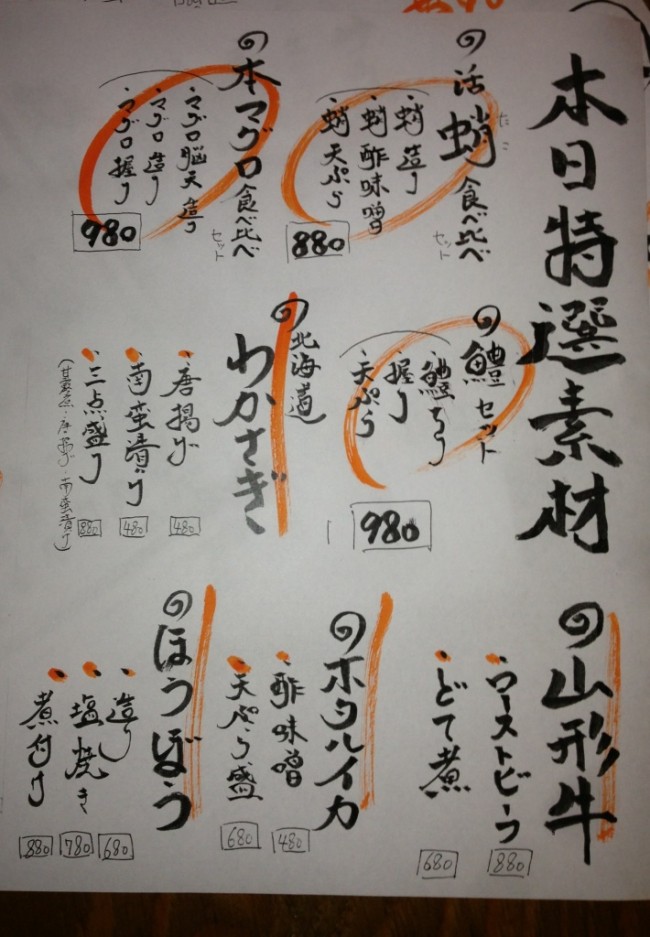 本日特選素材
活蛸食べ比べ
たこ
セット
・蛸造り
・蛸酢味噌
・蛸天ぷら
880
本マグロ食べ比べ
セット
・マグロ脳天造り
・マグロ造り
・マグロ握り
980
鱧セット
・鱧ちり
・握り
・天ぷら
980
北海道
わかさぎ
・唐揚げ
480
・南蛮漬け
480
・三点盛り
880
(甘露煮・唐揚げ・南蛮漬け)
山形牛
・ローストビーフ
880
・どて煮
680
ホタルイカ
・酢味噌
480
・天ぷら盛
680
ほうぼう
・造り
680
・塩焼き
780
・煮付け
880